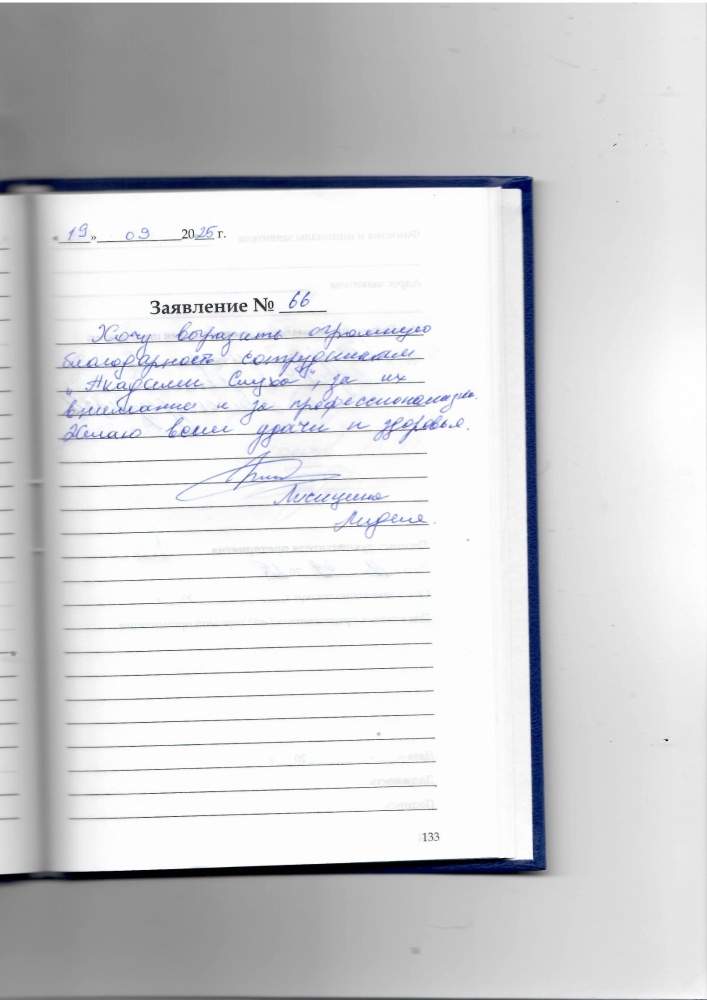 « 19 » 09 2025 г.
Заявление № 66
Хочу выразить огромную
благодарность сотрудникам
"Академии Слуха", за их
внимание и за профессионализм.
Желаю всем удачи и здоровья.
Лидия.
133